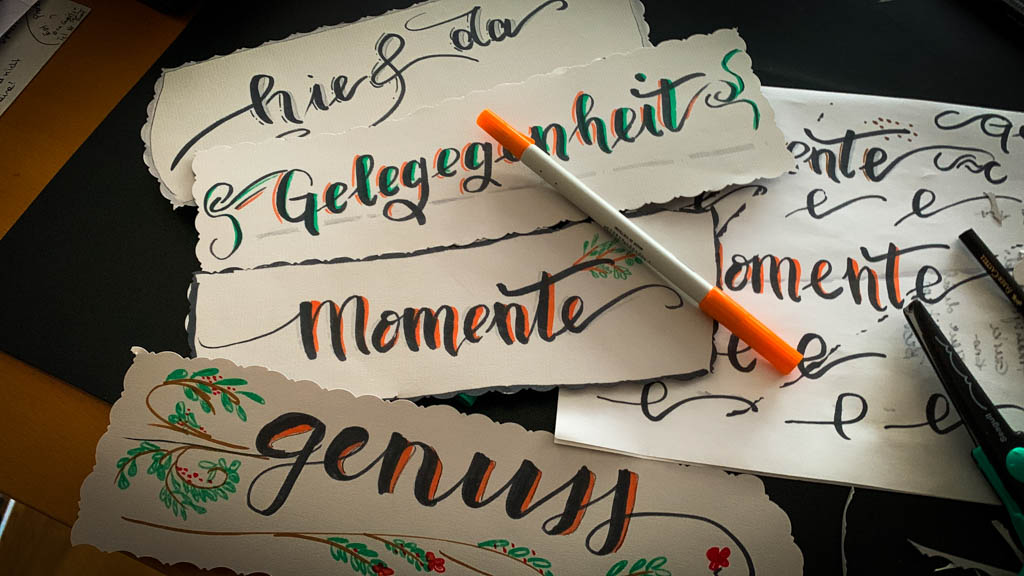 hie & da
Gelegegenheit
Momente
genuss
ente
e e
omente
e e
e e e